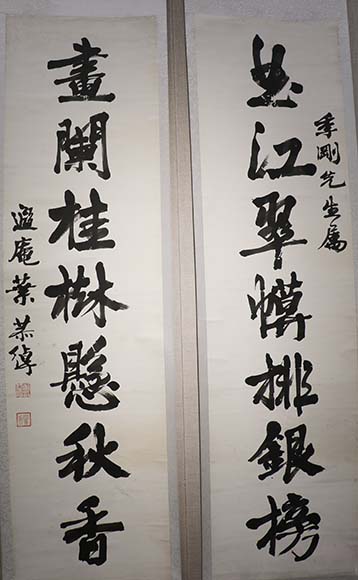 季剛先生屬
曲江翠幙排銀榜
畫闌桂樹懸秋香
遐庵葉恭綽